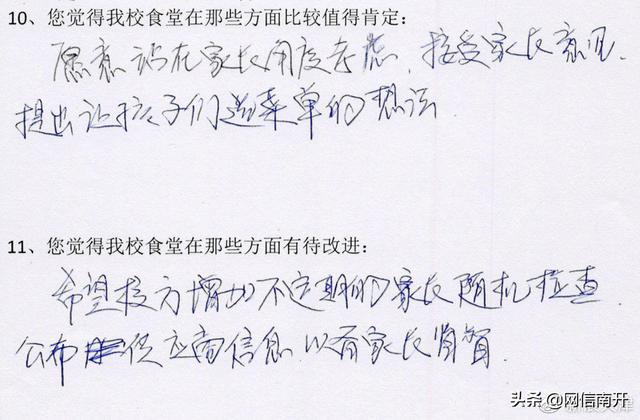 10、您觉得我校食堂在那些方面比较值得肯定：
愿意站在家长角度考虑，接受家长意见.
提出让孩子们选菜单的想法
11、您觉得我校食堂在那些方面有待改进：
希望校方增加不定期的家长随机检查
公布供应商信息 以便家长监督.
头条@网信南开